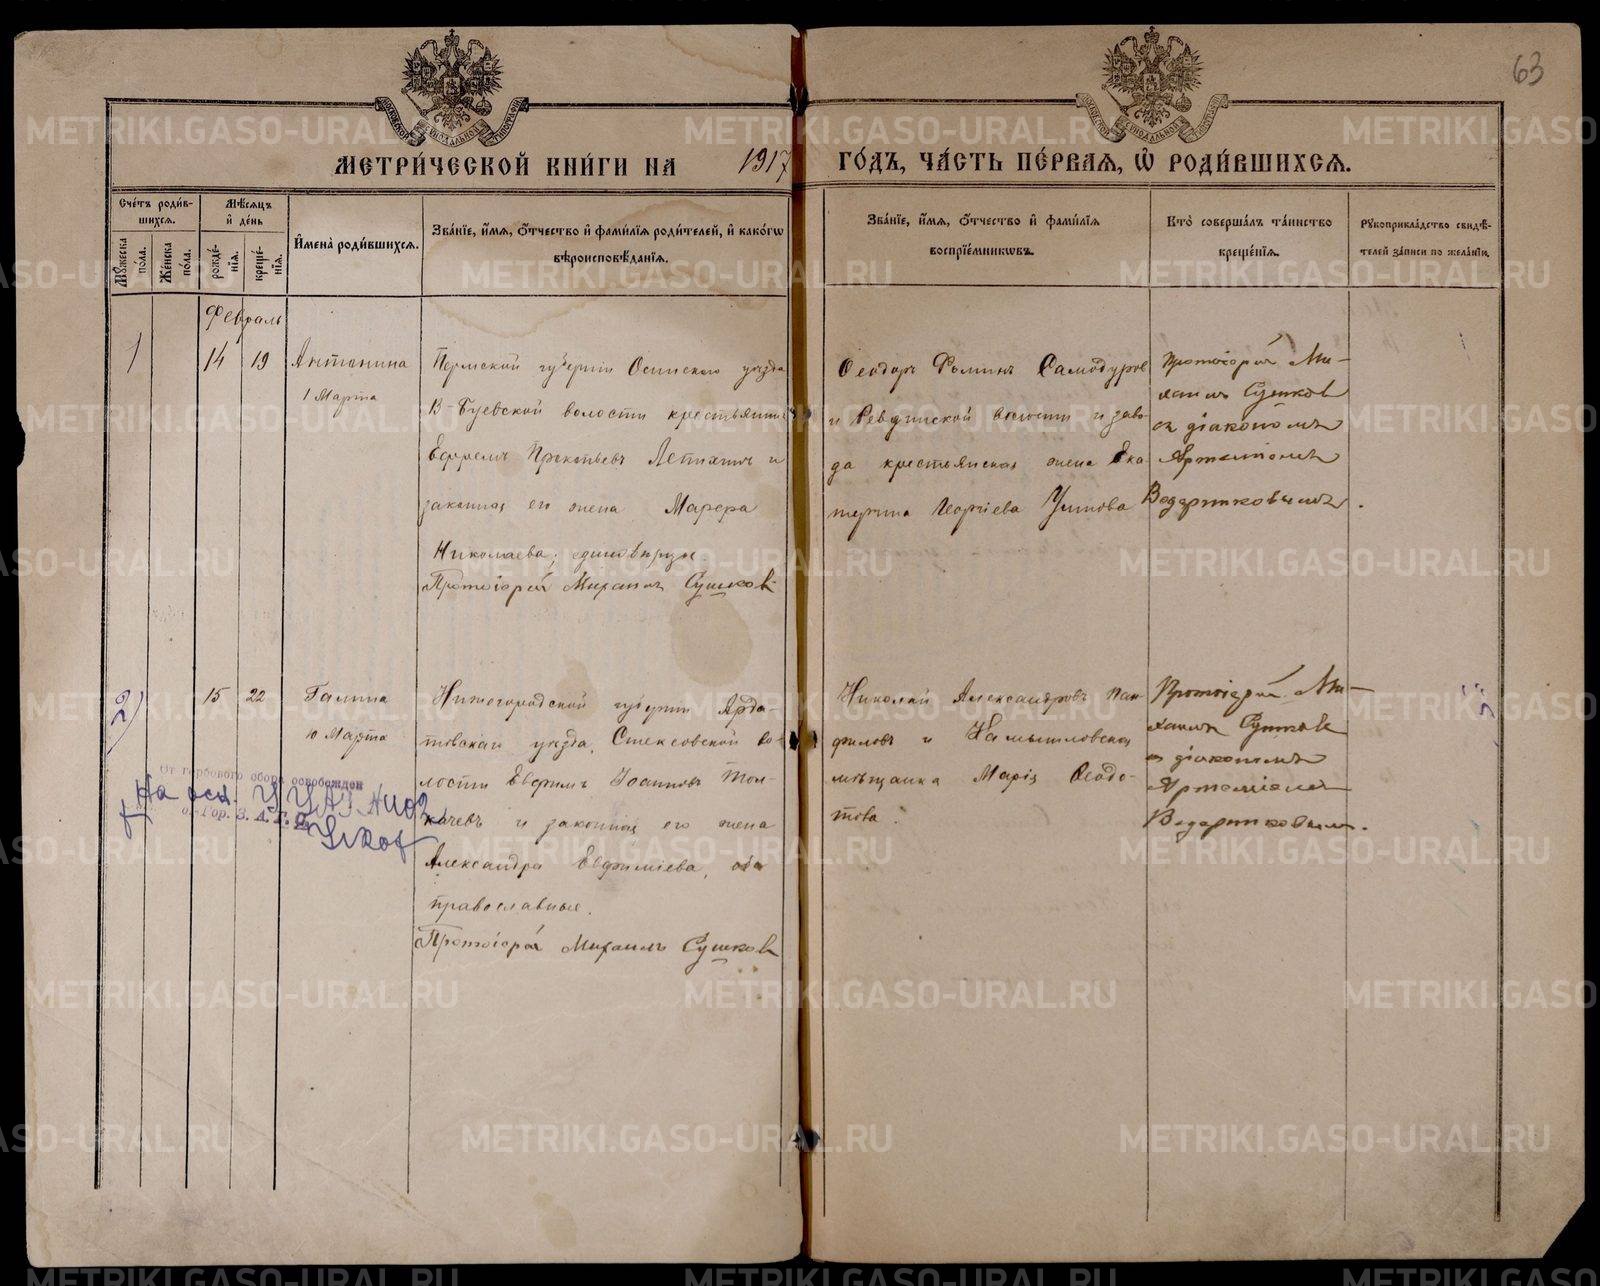 63
МОСКОВСКОЙ СѴНОДАЛЬНОЙ ТИПОГРАФІИ
МОСКОВСКОЙ СѴНОДАЛЬНОЙ ТИПОГРАФІИ
МЕТРИ́ЧЕСКОЙ КНИ́ГИ НА 1917 ГО́ДЪ, ЧА́СТЬ ПЕ́РВАЯ, Ѽ РОДИ́ВШИХСЯ.
Сче́тъ роди́в-
шихся.
Му́жеска по́ла.
Же́нска по́ла.
Мѣ́сяцъ
и҆ де́нь
рожде́-
нїя.
креще́-
нїя.
И҆мена̀ роди́вшихся.
Зва́нїе, и҆́мя, ѻ҆́тчество и҆ фами́лїя роди́телей, и҆ како́гѡ
вѣроисповѣ́данїя.
Зва́нїе, и҆́мя, ѻ҆́тчество и҆ фами́лїя
воспрїе́мниковъ.
Кто̀ соверша́лъ та́инство
креще́нїя.
Рукоприкла́дство свидѣ́-
телей за́писи по жела́нїю.
Февраль
1
14
19
Антонина
1 Марта
Пермской губерніи Осинскаго уѣзда
В-Буевской волости крестьянинъ
Ефремъ Прокопьевъ и
законная его жена Марѳа
Николаева; единовѣрцы
Протоіерей Михаилъ Сушковъ
Ѳеодоръ Ѳоминъ Самодуров
и Ревдинской волости и заво-
да крестьянская жена Ека
терина Георгіева Умнова
Протоіерей Ми-
хаилъ Сушков
съ діакономъ
Артеміемъ
Ведерниковымъ.
2)
15
22
Галина
10 Марта
Нижегородской губерніи Арда-
товскаго уѣзда, Стексовской во
лости Евфимъ Іоанновъ Тол-
качевъ и законная его жена
Александра Евфиміева, оба
православные.
Протоіерей Михаилъ Сушковъ
Николай Александровъ Пан-
филовъ и Камышловская
мѣщанка Марія Ѳеодо-
това.
Протоіерей Ми-
хаилъ Сушковъ
съ діакономъ
Артеміемъ
Ведерниковым.
От гербового сбора освобожден
на осн.
Гор. З. А. Г. С.
METRIKI.GASO-URAL.RU